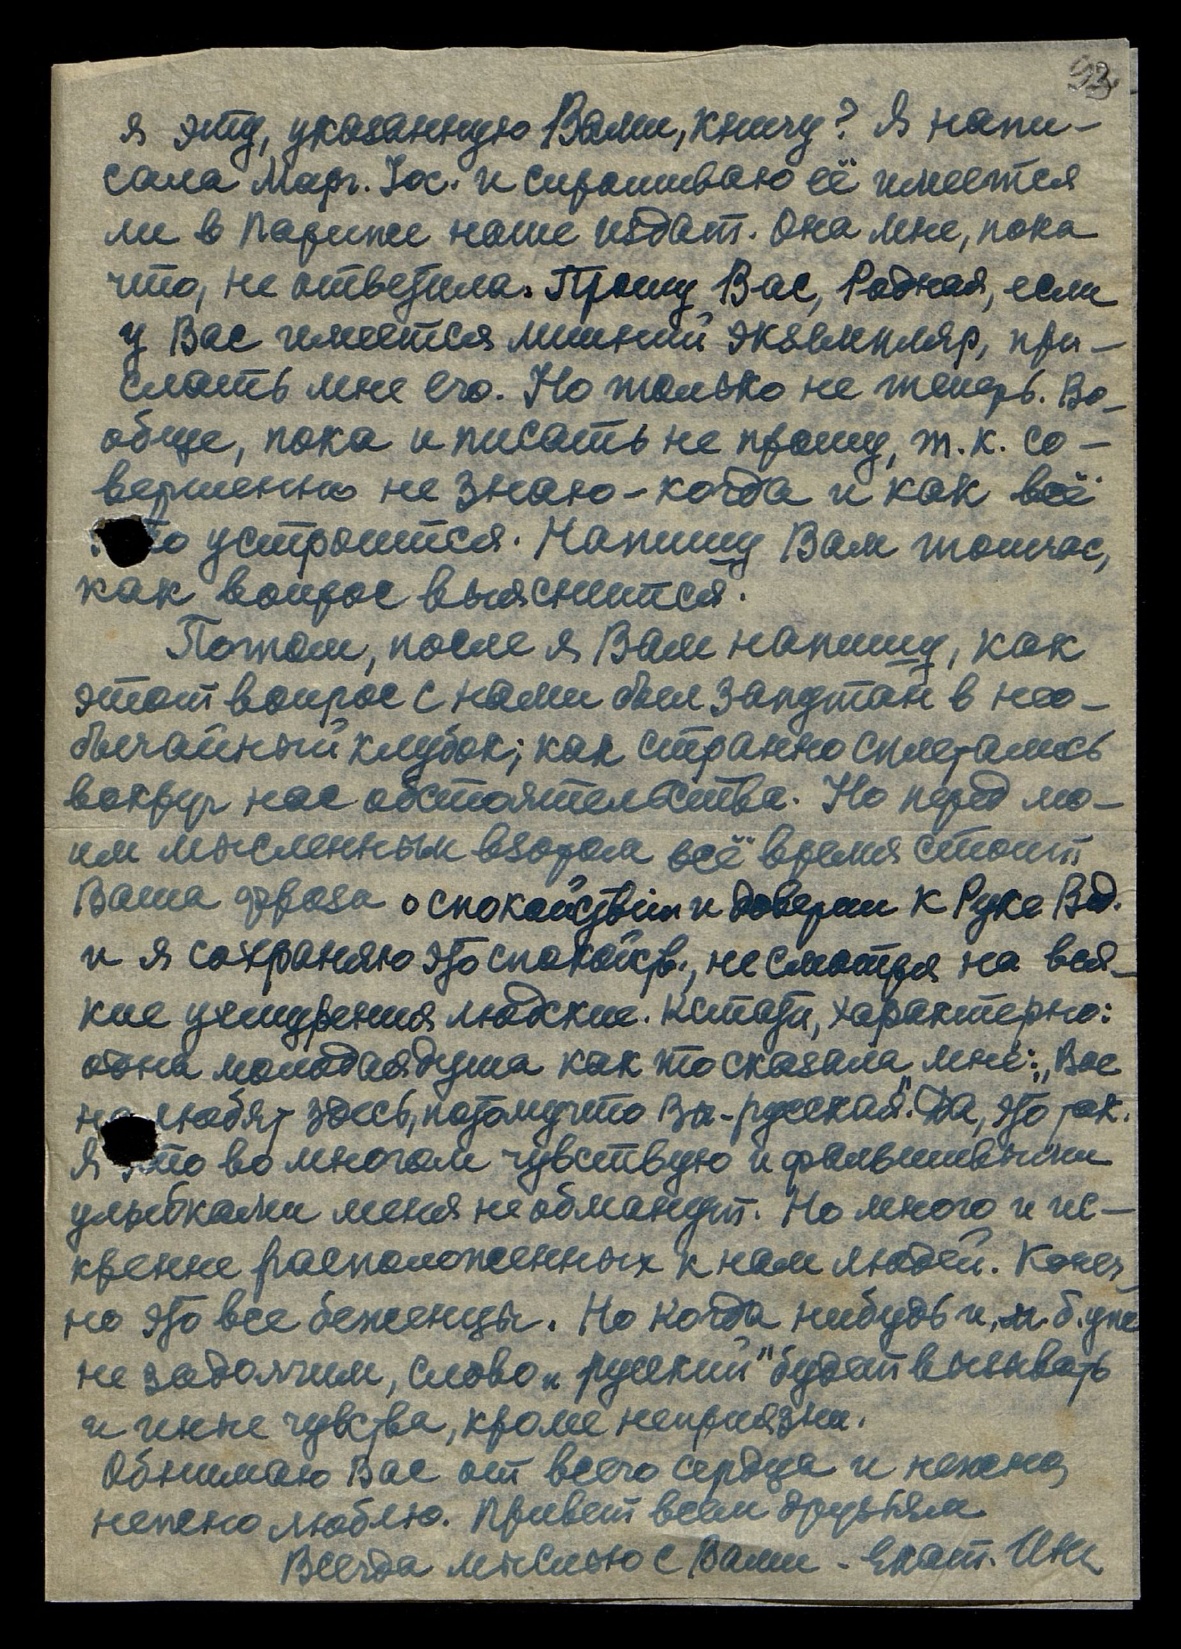 93
я эту, указанную Вами, книгу? Я напи-
сала Марг. Іос. и спрашиваю её имеется
ли в Париже наше издат. Она мне, пока
что, не ответила. Прошу Вас, Родная, если
у Вас имеется лишний экземпляр, при-
слать мне его. Но только не теперь. Во-
обще, пока и писать не прошу, т.к. со-
вершенно не знаю - когда и как всё
это устроится. Напишу Вам тотчас,
как вопрос выяснится.
Потом, после я Вам напишу, как
этот вопрос с нами был запутан в нео-
бычайный клубок; как странно сплетались
вокруг нас обстоятельства. Но перед мо-
им мысленным взором всё время стоит
Ваша фраза о спокойствіи и доверии к Руке Вд.
и я сохраняю это спокойств., не смотря на вся-
кие ухищрения людские. Кстати, характерно:
одна молодая душа как то сказала мне: „Вас
не любят здесь, потому что Вы - русская". Да, это так.
Я это во многом чувствую и фальшивыми
улыбками меня не обманут. Но много и ис-
кренне расположенных к нам людей. Конеч-
но это все беженцы. Но когда нибудь и, м.б. уже
не задолгим, слово „русский" будет вызывать
и иные чувства, кроме неприязни.
Обнимаю Вас от всего сердца и нежно,
нежно люблю. Привет всем друзьям
Всегда мыслью с Вами - Екат. Инк